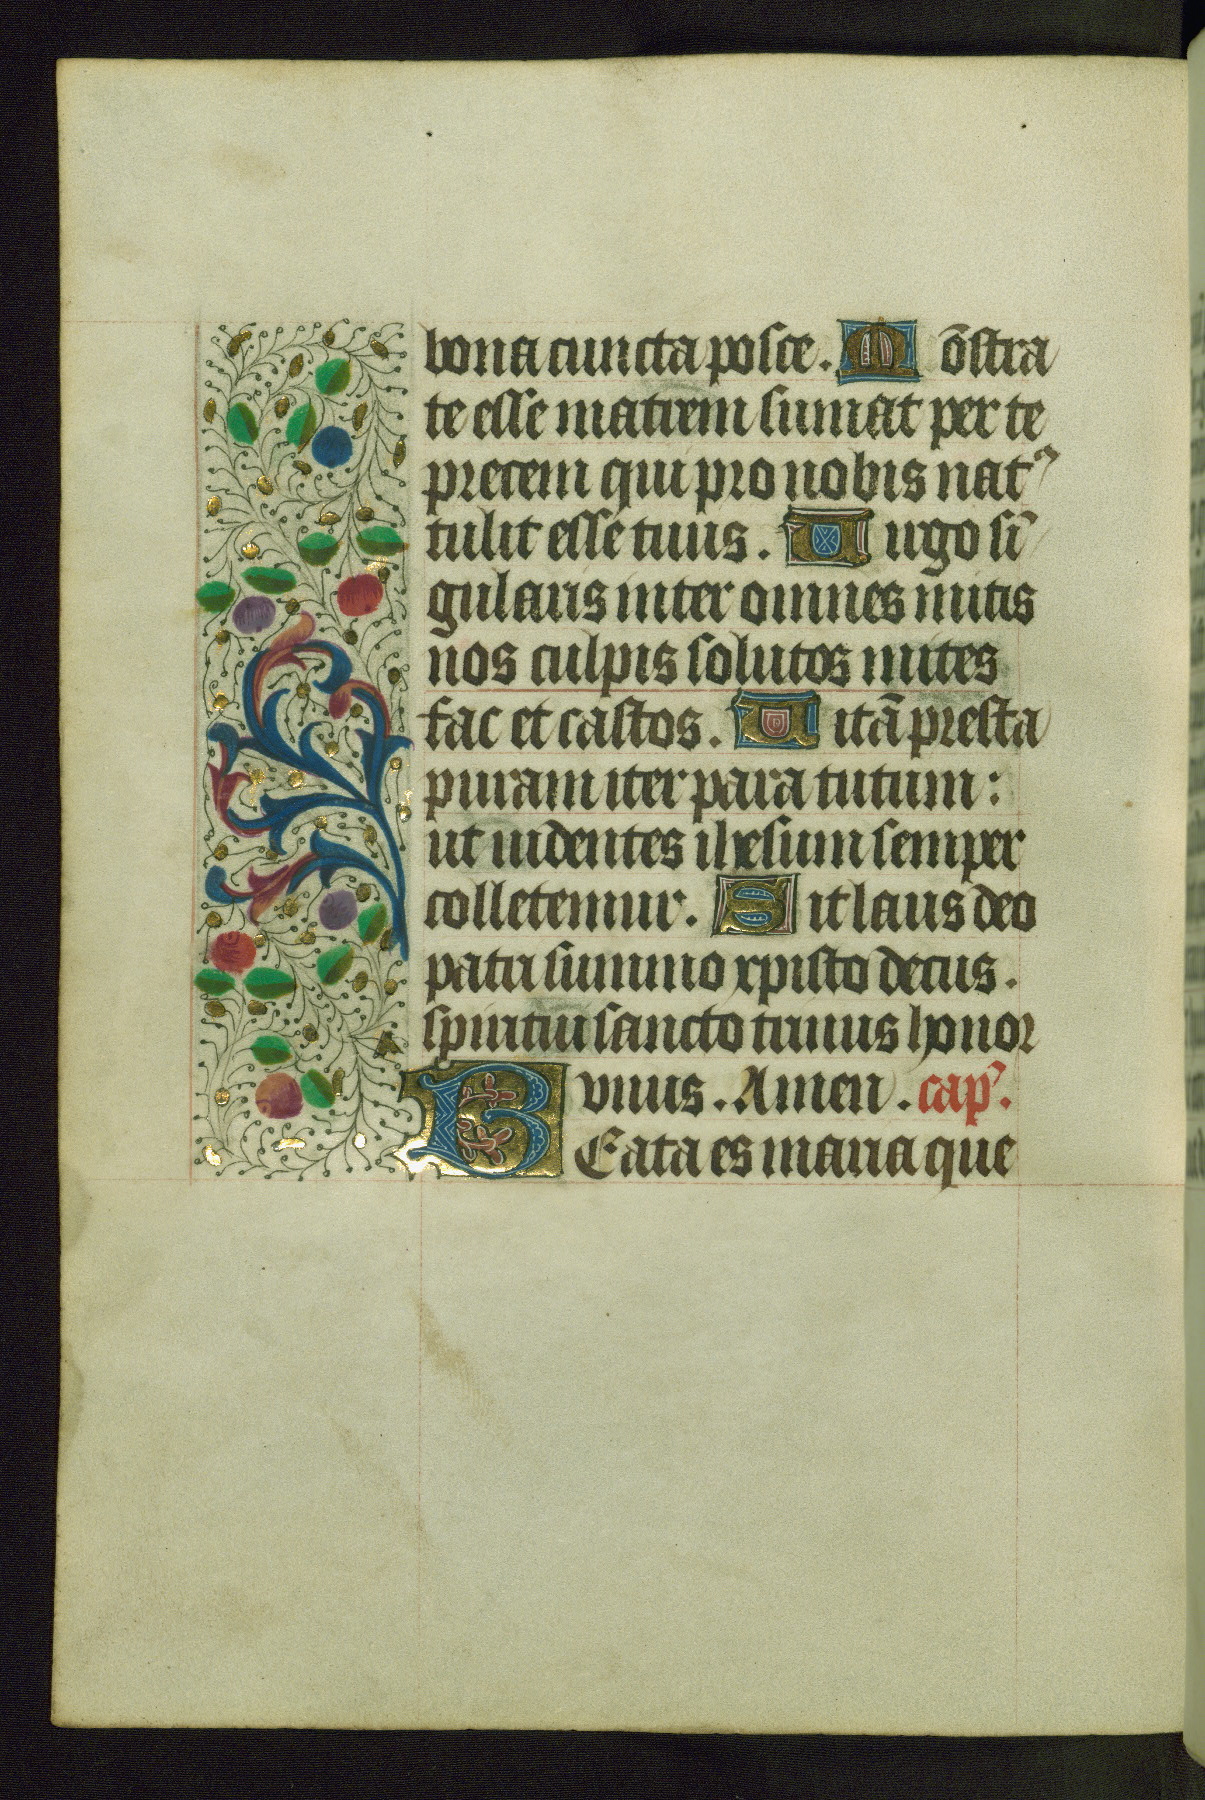 bona cuncta posce. Mōstra
te esse matrem sumat per te
precem qui pro nobis natꝰ
tulit esse tuus. Uirgo sī
gularis inter omnes mitis
nos culpis solutos mites
fac et castos. Uitā presta
puram iter para tutum:
ut uidentes ihesum semper
colletemur. Sit laus deo
patri summo xpisto decus.
spiritui sancto trinus honor
vnus. Amen. cap̄.
Beata es maria que